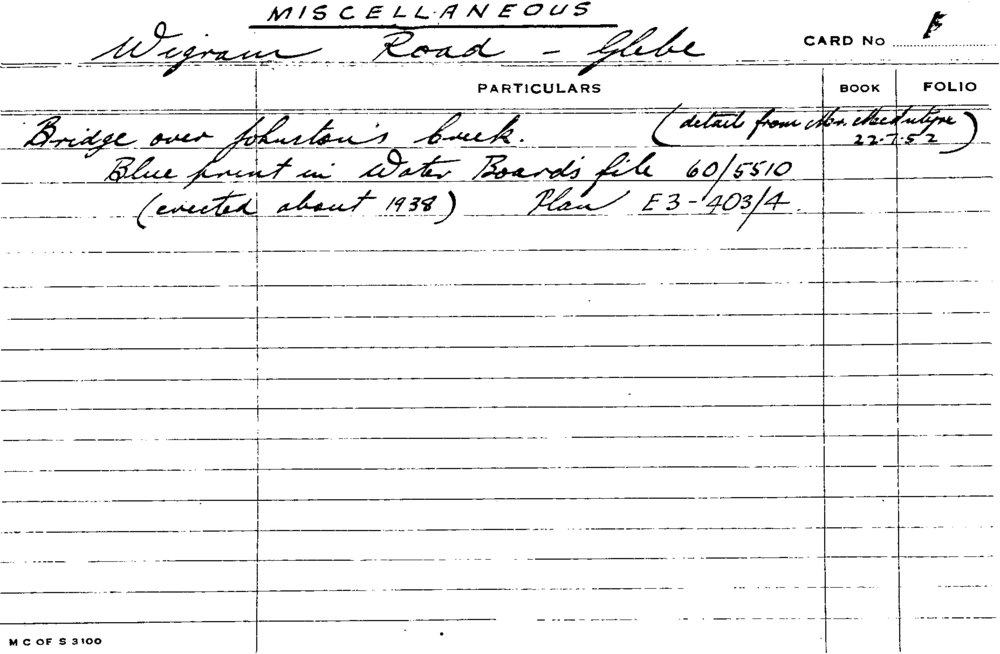 MISCELLANEOUS
Wigram Road - Glebe CARD No
PARTICULARS BOOK FOLIO
Bridge over Johnston's Creek. (detail from Mr. McIntyre
22.7.52)
Blue print in Water Board's file 60/5510
(erected about 1938) Plan E3-403/4.
M C OF S 3100